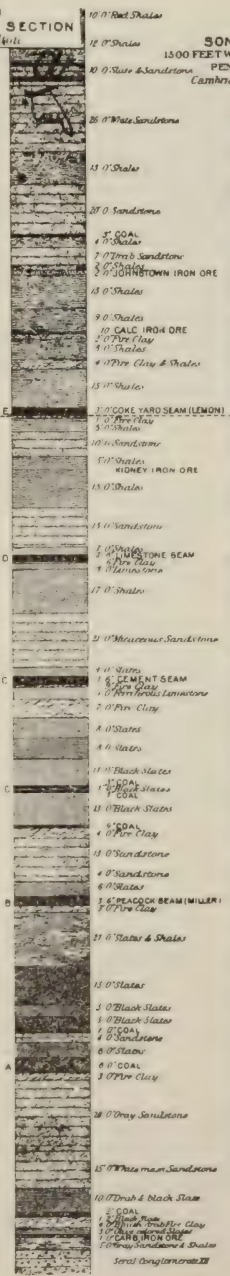 SECTION
SON
1500 FEET W
PEN
Cambri
10' 0" Red Shales
12' 0" Shales
10' 0" Slate & Sandstone
26' 0" White Sandstone
13' 0" Shales
20' 0" Sandstone
3" COAL
4' 0" Shales
7' 0" Drab Sandstone
Shales
2' 0" JOHNSTOWN IRON ORE
13' 0" Shales
9' 0" Shales
10" CALC IRON ORE
2' 0" Fire Clay
Shales
4' 0" Fire Clay & Shales
15' 0" Shales
E
3' 0" COKE YARD SEAM (LEMON)
Fire Clay
Shales
10' 0" Sandstone
5' 0" Shales
KIDNEY IRON ORE
15' 0" Shales
15' 0" Sandstone
Shales
D
LIMESTONE SEAM
Fire Clay
Limestone
17' 0" Shales
21' 0" Micaceous Sandstone
4' 0" Slates
C
CEMENT SEAM
Fire Clay
Ferriferous Limestone
7' 0" Fire Clay
8' 0" Slates
8' 0" Slates
11' 0" Black Slates
C
COAL
Black Slates
COAL
13' 0" Black Slates
COAL
4' 0" Fire Clay
13' 0" Sandstone
4' 0" Sandstone
6' 0" Slates
B
3' 6" PEACOCK SEAM (MILLER)
Fire Clay
27' 0" Slates & Shales
15' 0" Slates
5' 0" Black Slates
Black Slates
COAL
4' 0" Sandstone
6' 0" Slates
A
6" 0" COAL
3' 0" Fire Clay
28' 0" Gray Sandstone
15' 0" White mass Sandstone
10' 0" Drab & black Slate
2" COAL
Black Slate
Fire Clay
Olive colored Slates
CARB IRON ORE
Gray Sandstone & Shales
Seral Conglomerate XII